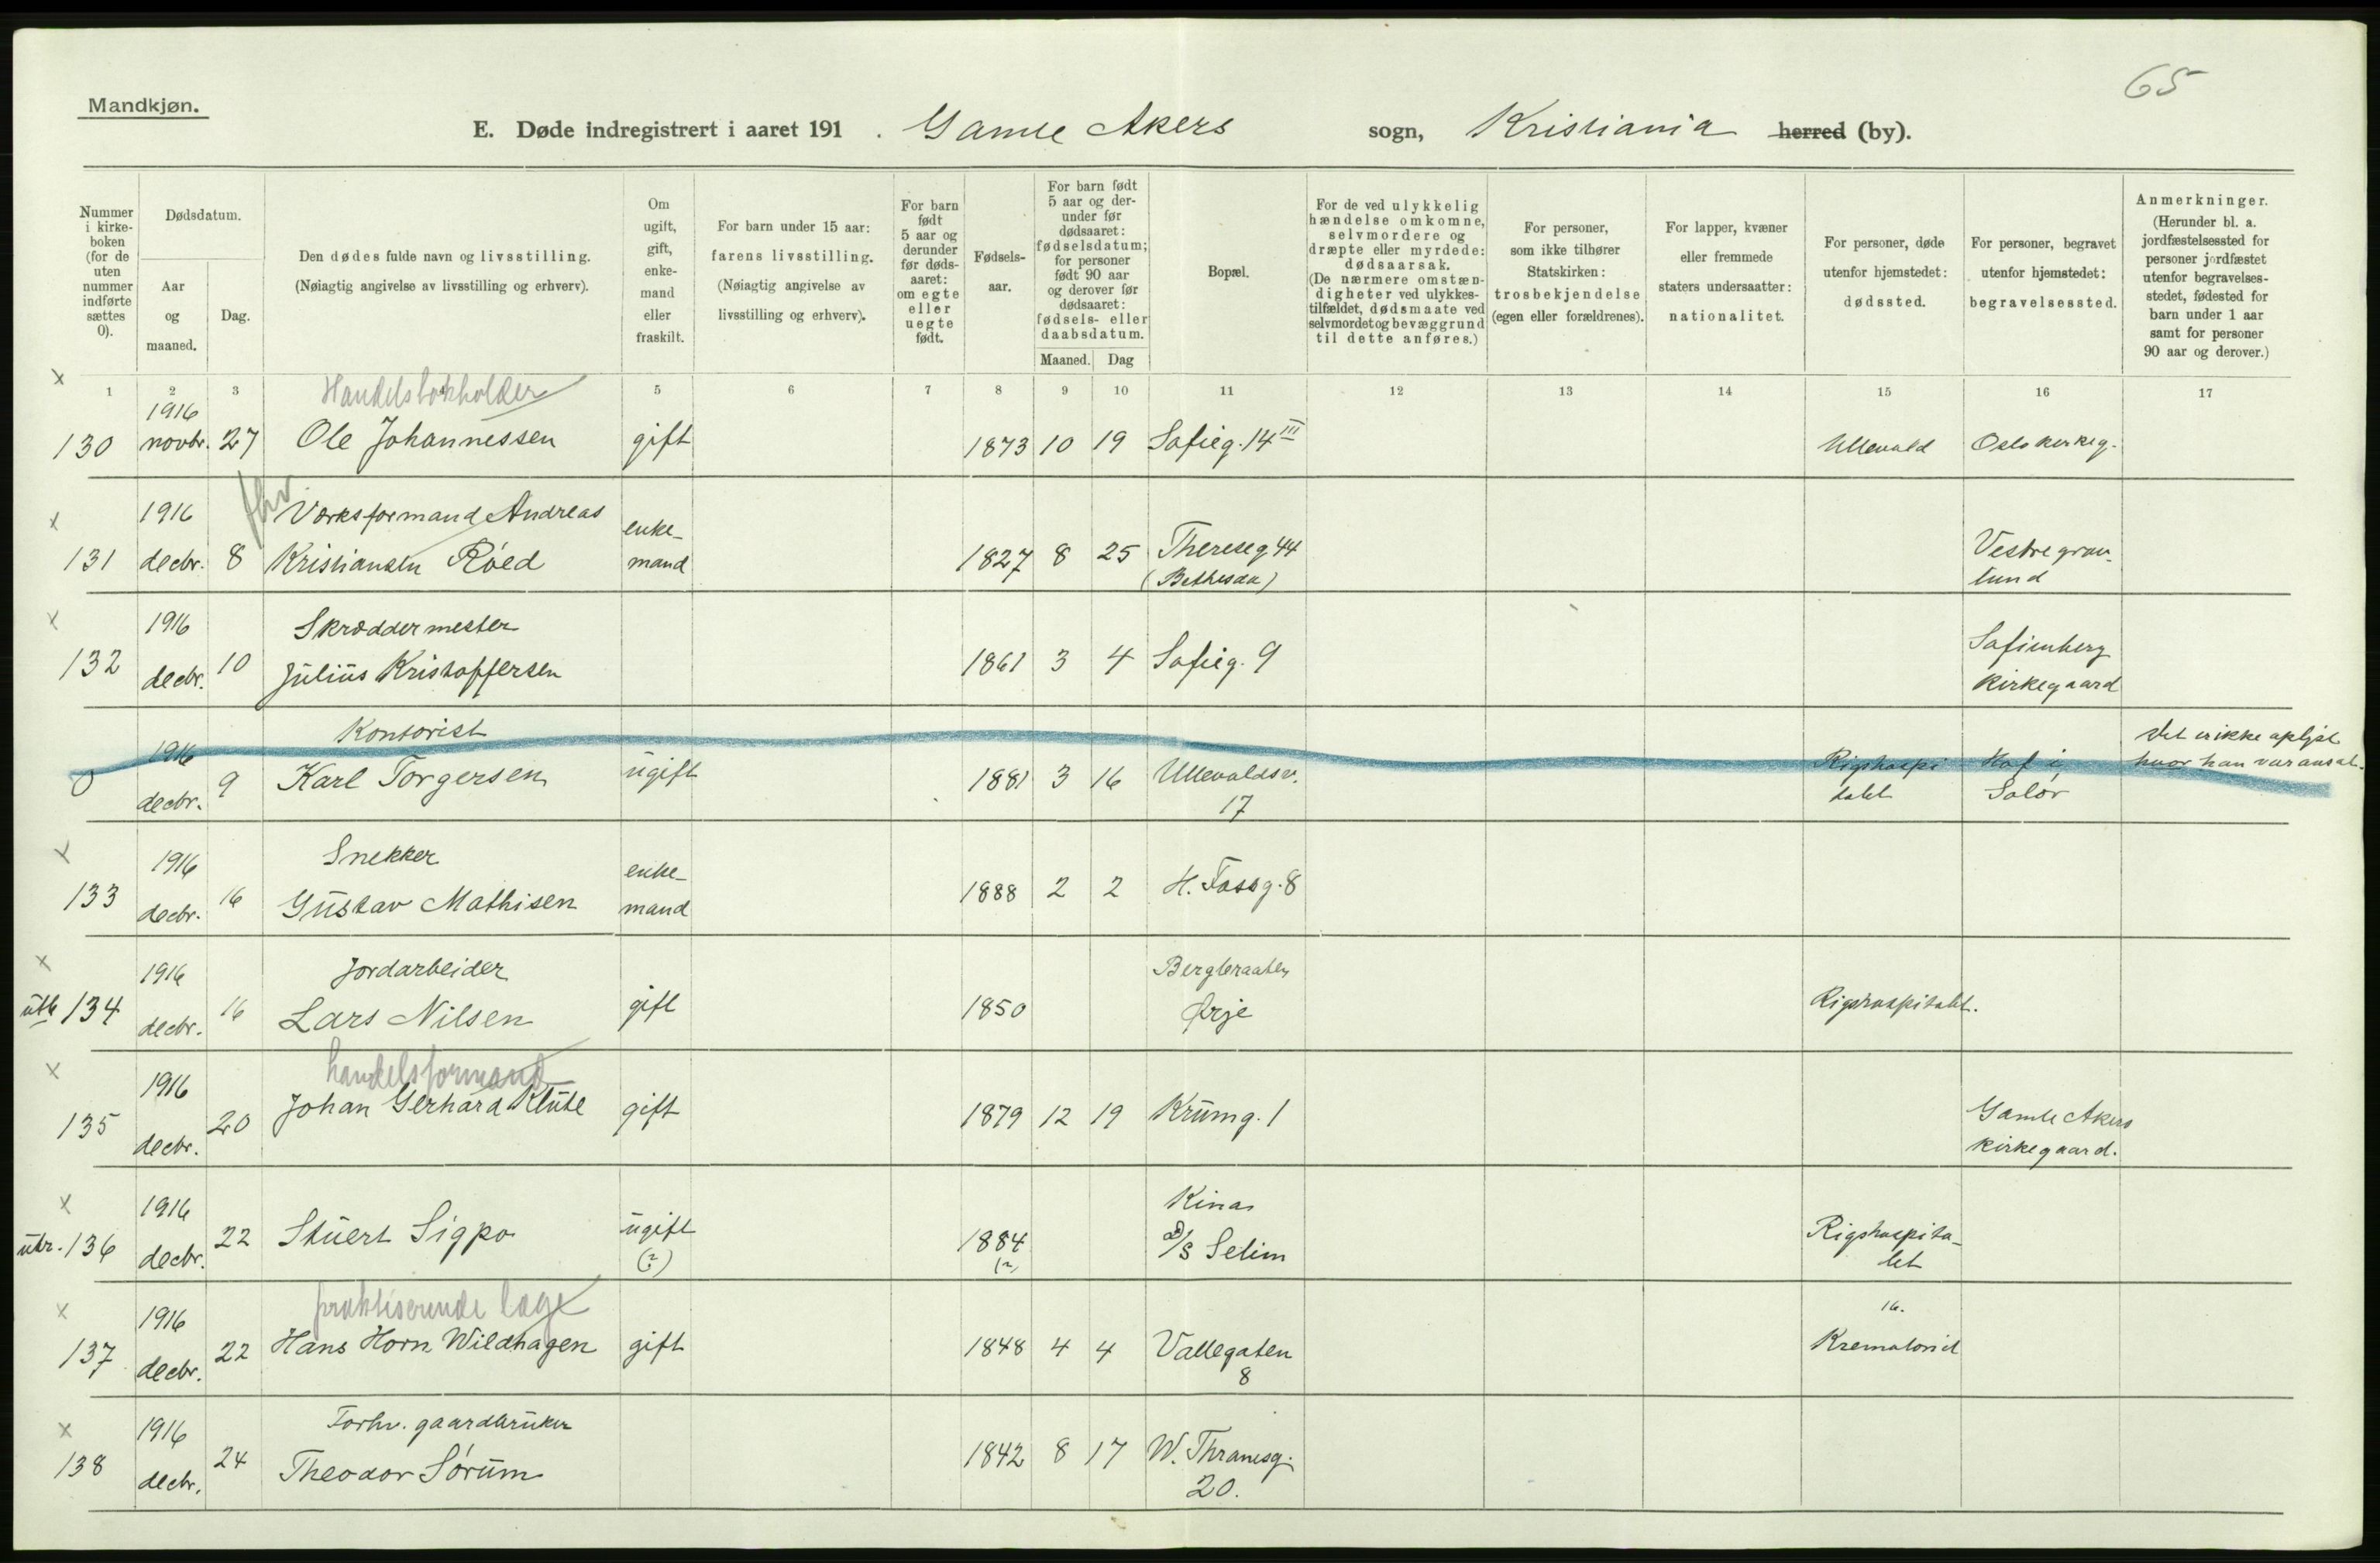 65
Mandkjøn.
E. Døde indregistrert i aaret 191 . Gamle Akers sogn, Kristiania herred (by).
Nummer i kirke-boken (for de uten nummer indførte sættes 0).
Dødsdatum.
Aar og maaned.
Dag.
Den dødes fulde navn og livsstilling.
(Nøiagtig angivelse av livsstilling og erhverv).
Om ugift, gift, enke-mand eller fraskilt.
For barn under 15 aar:
farens livsstilling.
(Nøiagtig angivelse av livsstilling og erhverv).
For barn født 5 aar og derunder før døds-aaret: om egte eller uegte født.
Fødsels-aar.
For barn født 5 aar og der-under før dødsaaret: fødselsdatum; for personer født 90 aar og derover før dødsaaret: fødsels- eller daabsdatum.
Maaned. Dag
Bopæl.
For de ved ulykkelig hændelse omkomne, selvmordere og dræpte eller myrdede: dødsaarsak.
(De nærmere omstæn-digheter ved ulykkes-tilfældet, dødsmaate ved selvmordet og bevæggrund til dette anføres.)
For personer, som ikke tilhører Statskirken: trosbekjendelse (egen eller forældrenes).
For lapper, kvæner eller fremmede staters undersaatter: nationalitet.
For personer, døde utenfor hjemstedet: dødssted.
For personer, begravet utenfor hjemstedet: begravelsessted.
Anmerkninger.
(Herunder bl. a. jordfæstelsessted for personer jordfæstet utenfor begravelses-stedet, fødested for barn under 1 aar samt for personer 90 aar og derover.)
1 2 3 5 6 7 8 9 10 11 12 13 14 15 16 17
x Handelsbokholder
1916
130 novbr. 27 Ole Johannessen gift 1873 10 19 Sofieg. 14 III Ullevold Oslo kirkeg.
x 1916 fhv Værksformand Andreas enke-
131 decbr. 8 Kristiansen Róed mand 1827 8 25 Thereseg. 44 Vestre grav-
(Bethesda) lund
x 1916 Skræddermester
132 decbr. 10 Julius Kristoffersen 1861 3 4 Sofieg. 9 Sofienberg
kirkegaard
1916 Kontorist Det er ikke oplyst
0 decbr. 9 Karl Torgersen ugift 1881 3 16 Ullevoldsv. Rigshospi Hof i hvor han var ansat.
17 talet Solør
x 1916 Snekker enke-
133 decbr. 16 Gustav Mathisen mand 1888 2 2 H. Fossg. 8
x 1916 Jordarbeider
134 decbr. 16 Lars Nilsen gift 1850 Ørje Rigshospitalet.
x 1916 handelsformand
135 decbr. 20 Johan Gerhard Klute gift 1879 12 19 Krumg. 1 Gamle Akers
kirkegaard.
x 1916 Kina
utr. 136 decbr. 22 Stuert Sigpo ugift 1884 D/S Selim Rigshospita-
(?) (?) let
x 1916 praktiserende læge
16.
137 decbr. 22 Hans Horn Wildhagen gift 1848 4 4 Vallegaten Krematoriet
8
x 1916 Forhv. gaardbruker
138 decbr. 24 Theodor Sórum 1842 8 17 W. Thranesg.
20.